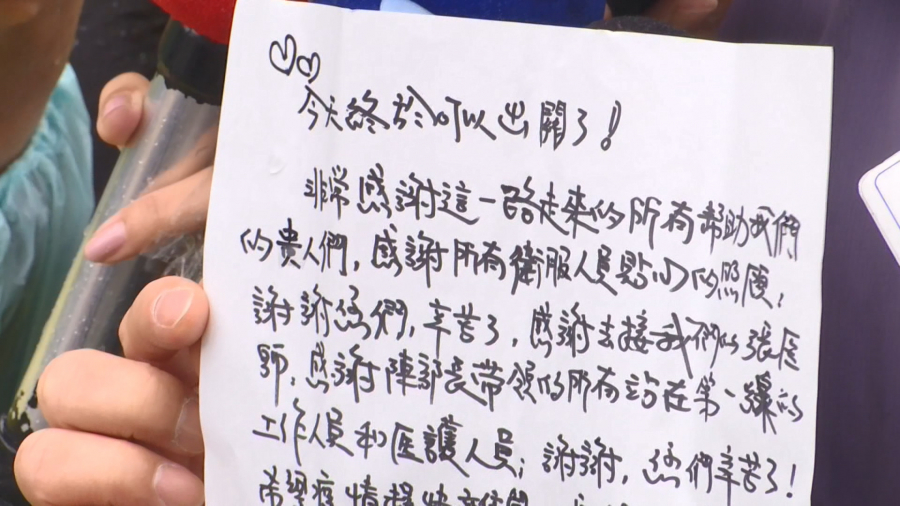 今天終於可以出關了!
非常感謝這一路走來的所有幫助我們
的貴人們,感謝所有衛服人員點心的照顧,
謝謝您們,辛苦了,感謝去接我們的張医
師,感謝陳部長帶領的所有站在第一線的
工作人員和医護人員;謝謝,您們辛苦了!
希望疫情趕快